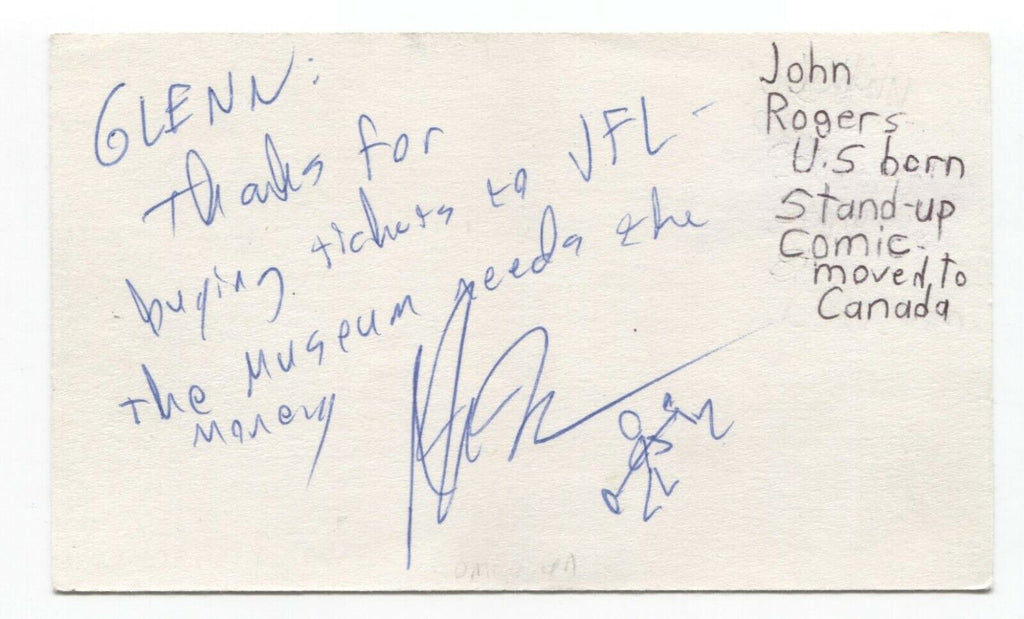 GLENN:
Thanks for
buying tickets to JFL -
the Museum needs the
money
John
Rogers
U.S born
Stand-up
Comic-
moved to
Canada